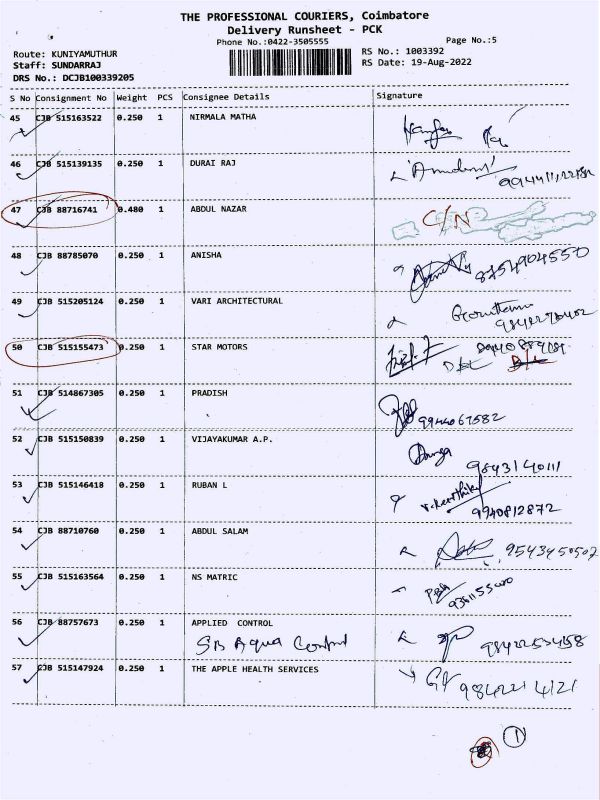 THE PROFESSIONAL COURIERS, Coimbatore
Delivery Runsheet - PCK
Phone No.:0422-3505555
Page No.:5
Route: KUNIYAMUTHUR
RS No.: 1003392
Staff: SUNDARRAJ
RS Date: 19-Aug-2022
DRS No.: DCJB100339205
S No Consignment No Weight PCS Consignee Details Signature
45 CJB 515163522 0.250 1 NIRMALA MATHA
46 CJB 515139135 0.250 1 DURAI RAJ
47 CJB 88716741 0.480 1 ABDUL NAZAR C/N
48 CJB 88785070 0.250 1 ANISHA 8754904550
49 CJB 515205124 0.250 1 VARI ARCHITECTURAL
50 CJB 515155473 0.250 1 STAR MOTORS
51 CJB 514867305 0.250 1 PRADISH 9944067582
52 CJB 515150839 0.250 1 VIJAYAKUMAR A.P.
9843140111
53 CJB 515146418 0.250 1 RUBAN L
9940812872
54 CJB 88710760 0.250 1 ABDUL SALAM 9543450507
55 CJB 515163564 0.250 1 NS MATRIC
56 CJB 88757673 0.250 1 APPLIED CONTROL
SB Aqua Control
57 CJB 515147924 0.250 1 THE APPLE HEALTH SERVICES
9842214121
1